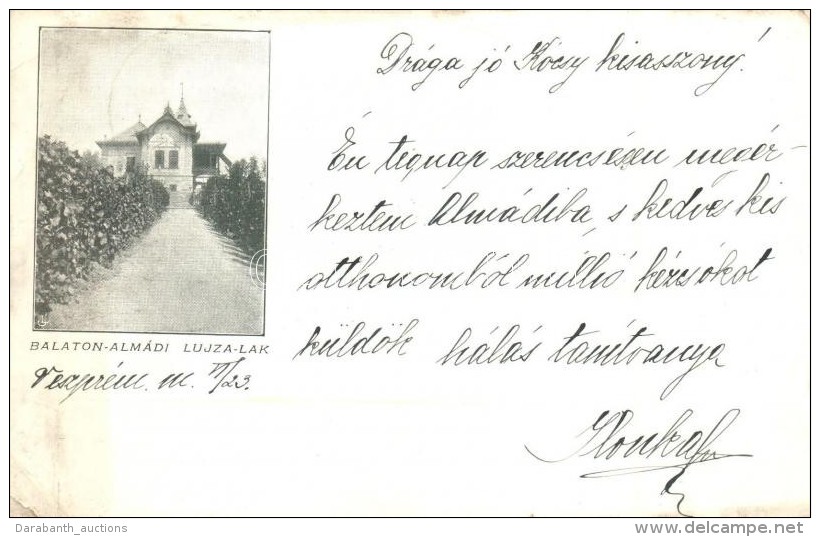 Drága jó Kócsy kisasszony!
Én tegnap szerencsésen megér-
keztem Almádiba, s kedves kis
otthonomból millió kézcsókot
küldök hálás tanítványa
Ilonka
BALATON-ALMÁDI LUJZA-LAK
Veszprém. m. VI/23.
Darabanth_auctions
delcampe.net